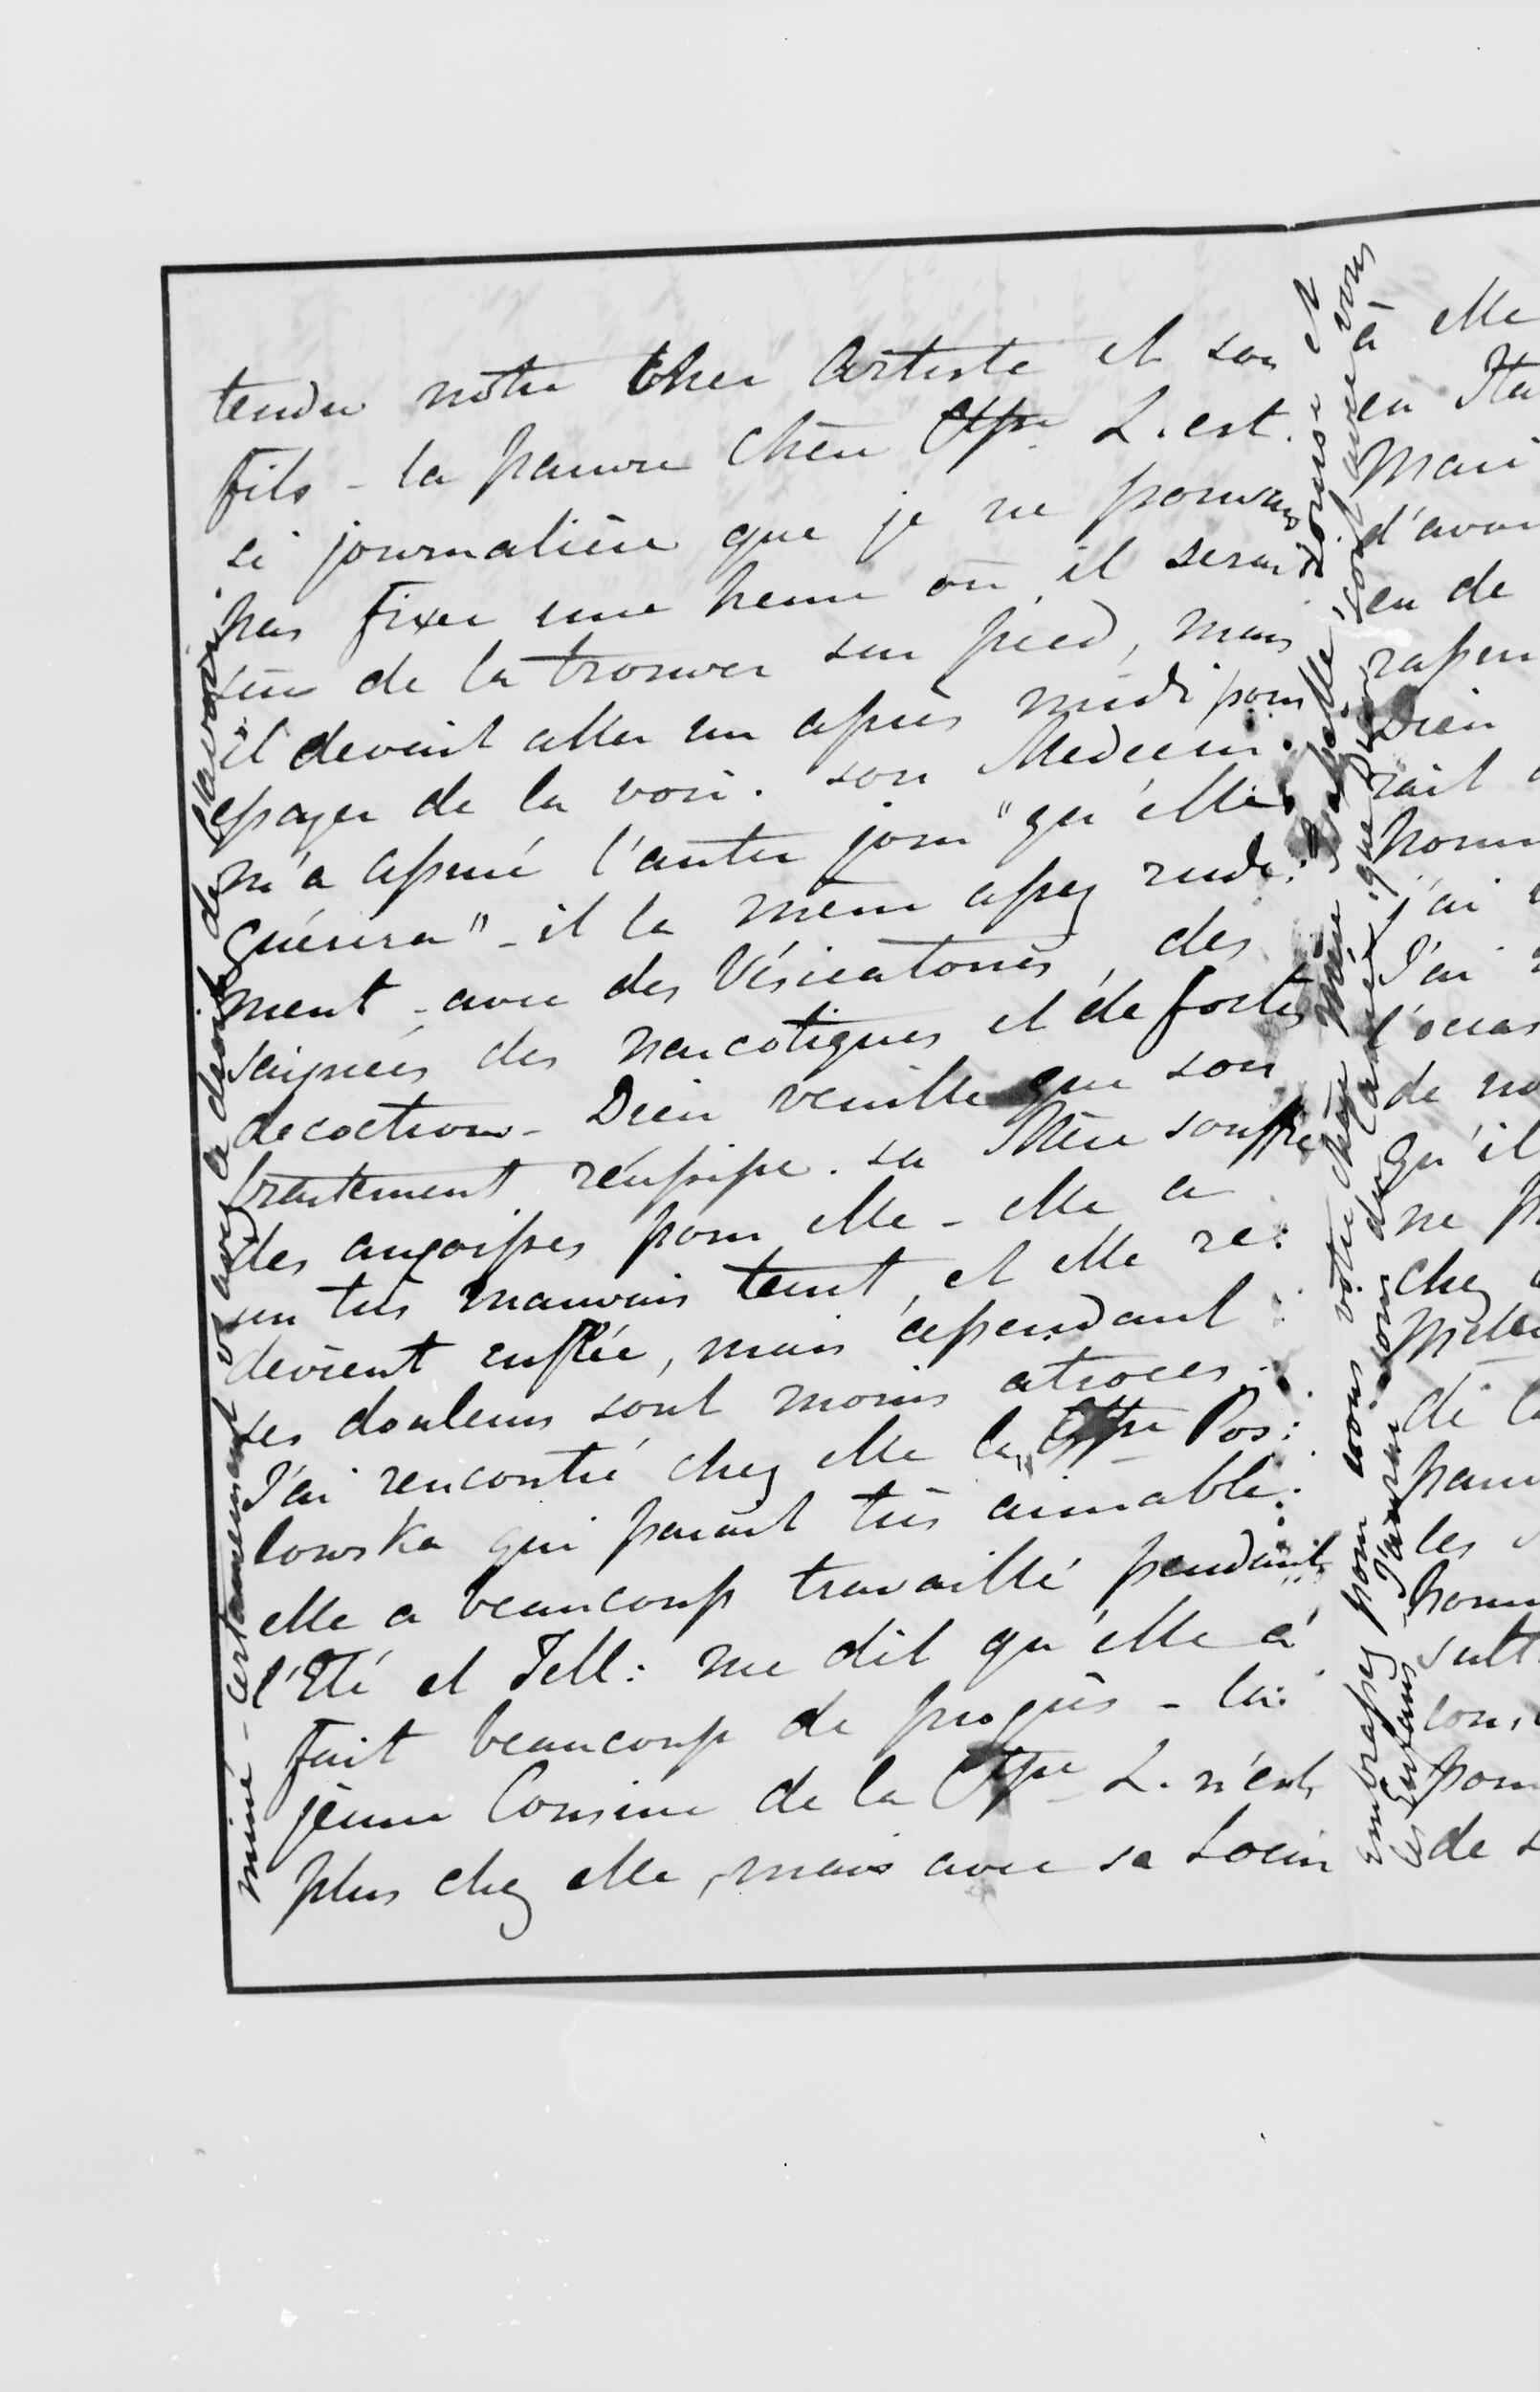 tendu notre cher Artiste et son
fils - la pauvre chère Ctsse L. est
si journalière que je ne pouvais
pas fixer une heure où il serait
sûr de la trouver sur pied, mais
il devait aller un après midi pour
essayer de la voir. son Medecin
m'a assuré l'autre jour "qu'elle
guérira" - il la mène assez rude:
ment - avec des Vésicatoires, des
saignées des narcotiques et de fortes
decoctions - Dieu veuille que son
traitement réussisse. sa Mère souffre
des angoisses pour elle - elle a
un très mauvais teint, et elle re:
devient enflée, mais cependant
ses douleurs sont moins atroces.
J'ai rencontré chez elle la Ctsse Pos:
lowska qui parait très aimable.
elle a beaucoup travaillé pendant
l'Eté et Tell: me dit qu'elle a
fait beaucoup de progrès - la
jeune Cousine de la Ctsse L. n'est
plus chez elle, mais avec sa Soeur
miné - certainement vs avez le droit de l'avoir.
embrassez pour nous votre chère Mère Isabelle Louise et
les Enfans - J'aurai soin du que Dieu soit avec vous
à elle
en Ita
Mari
d'avoi
eu de
Dieu
rait
homm
j'ai
J'ai
l'occas
de no
qu'il
ne p
chez
de la
pauv
les
homm
pour
de s